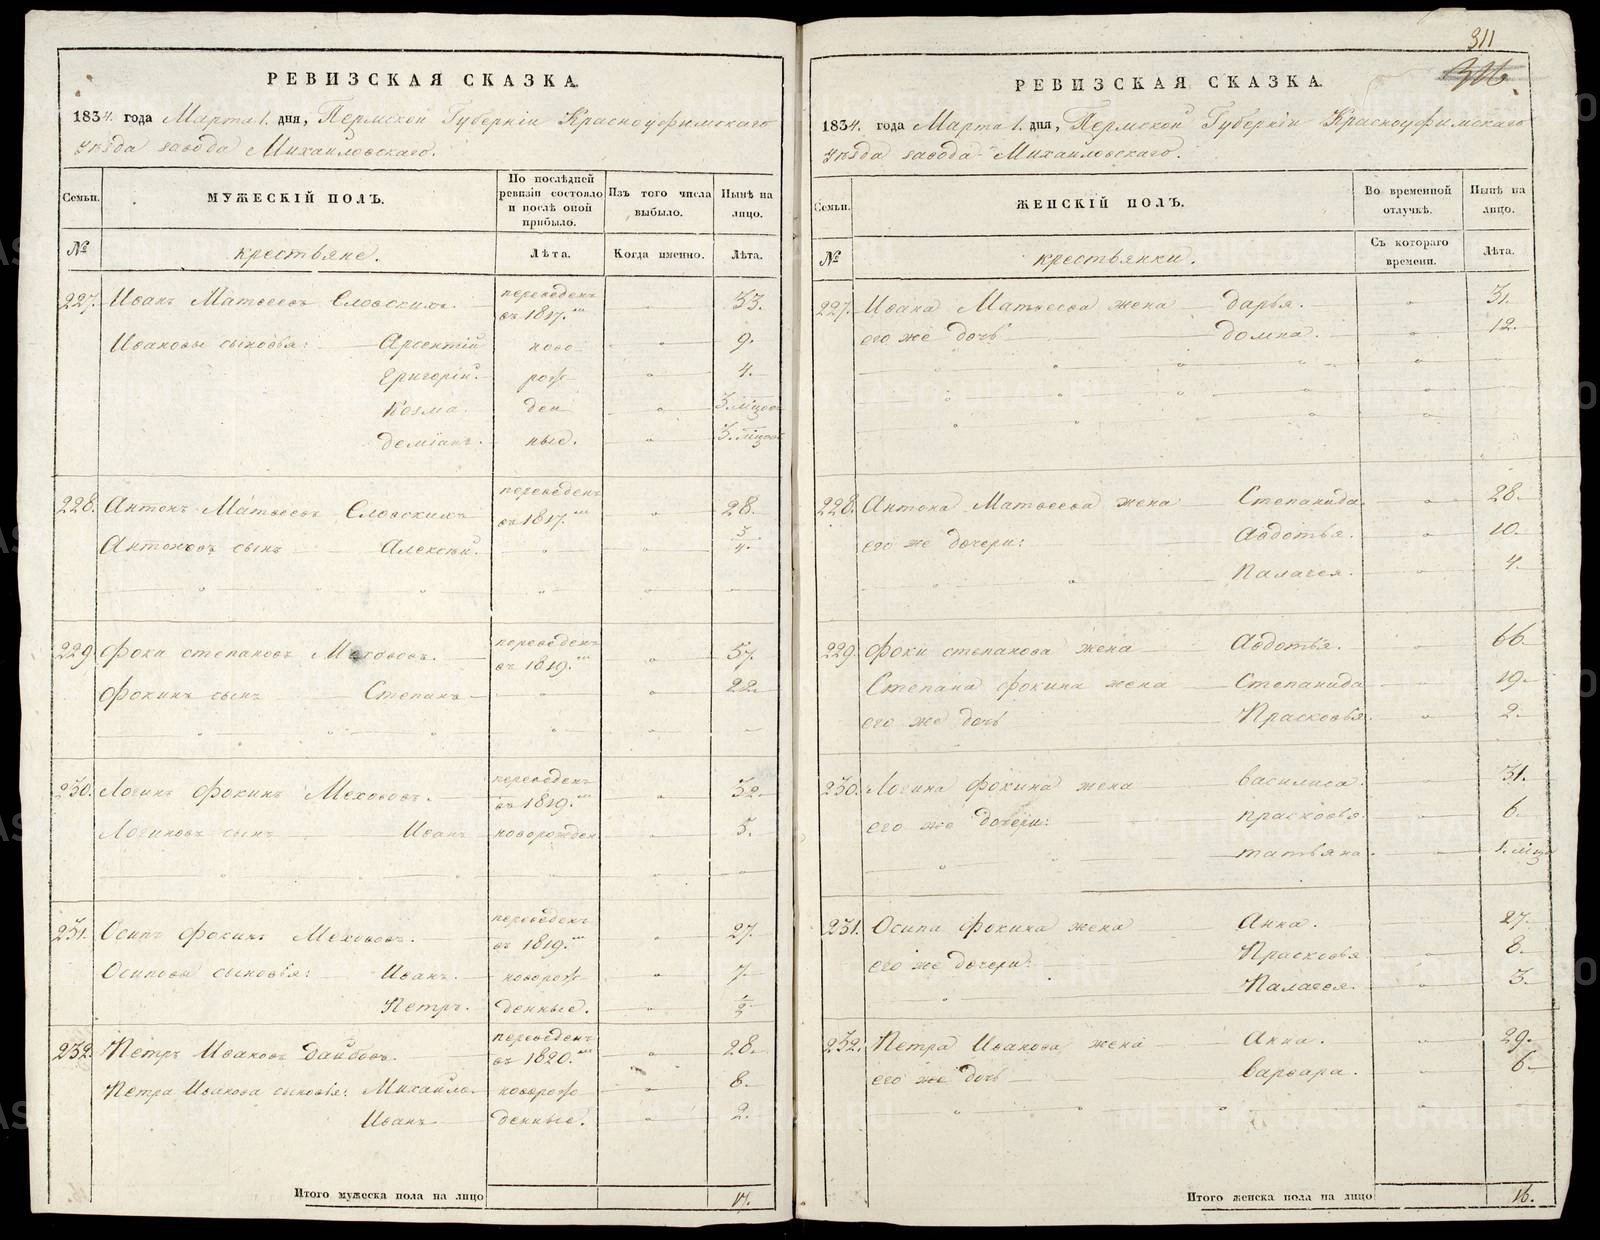 311
РЕВИЗСКАЯ СКАЗКА.
1834. года Марта 1. дня, Пермской Губернiи Красноуфимскаго
уѣзда завода Михайловскаго.
Семьи.
МУЖЕСКIЙ ПОЛЪ.
По послѣдней ревизiи состояло и послѣ оной прибыло.
Изъ того числа выбыло.
Нынѣ на лицо.
№
крестьяне.
Лѣта.
Когда именно.
Лѣта.
227. Иванъ Матвеевъ Словскихъ. переведенъ въ 1817.мъ 33.
Ивановы сыновья: Арсентiй ново 9.
Григорiй рож 4.
Козма ден 3 мѣсцов
Демiанъ. ные. 3. мѣсцов
228. Антонъ Матвеевъ Словскихъ переведенъ въ 1817.мъ 28.
Антоновъ сынъ Алексѣй. 3/4.
229 Фока степановъ Меховъ. переведенъ въ 1819.мъ 57.
Фокинъ сынъ Степанъ 22.
230. Логинъ Фокинъ Меховъ. переведенъ въ 1819.мъ 32.
Логиновъ сынъ Иванъ новорожден 5.
231. Осипъ Фокинъ Меховъ. переведенъ въ 1819.мъ 27.
Осиповы сыновья: Иванъ. новорож 7.
Петръ. денные. 1/2
232. Петръ Ивановъ переведенъ въ 1820.мъ 28.
Петра Иванова сыновья: Михайло новорож 8.
Иванъ денные. 2.
Итого мужеска пола на лицо 17.
РЕВИЗСКАЯ СКАЗКА.
1834. года Марта 1. дня, Пермской Губернiи Красноуфимскаго
уѣзда завода Михайловскаго.
Семьи.
ЖЕНСКIЙ ПОЛЪ.
Во временной отлучкѣ.
Нынѣ на лицо.
№
крестьянки.
Съ котораго времени.
Лѣта.
227. Ивана Матвеева жена Дарья. 31.
его же дочь Домна. 12.
228. Антона Матвеева жена Степанида. 28.
его же дочери: Авдотья. 10.
Палагея. 4.
229. Фоки степанова жена Авдотья. 66.
Степана Фокина жена Степанида 19.
его же дочь Прасковья. 2.
230. Логина Фокина жена Василиса. 31.
его же дочери: Прасковья. 6.
татьяна. 1. мѣсца
231. Осипа Фокина жена Анна. 27.
его же дочери: Прасковья 8.
Палагея. 3.
232. Петра Иванова жена Анна. 29.
его же дочь Варвара. 6.
Итого женска пола на лицо 16.